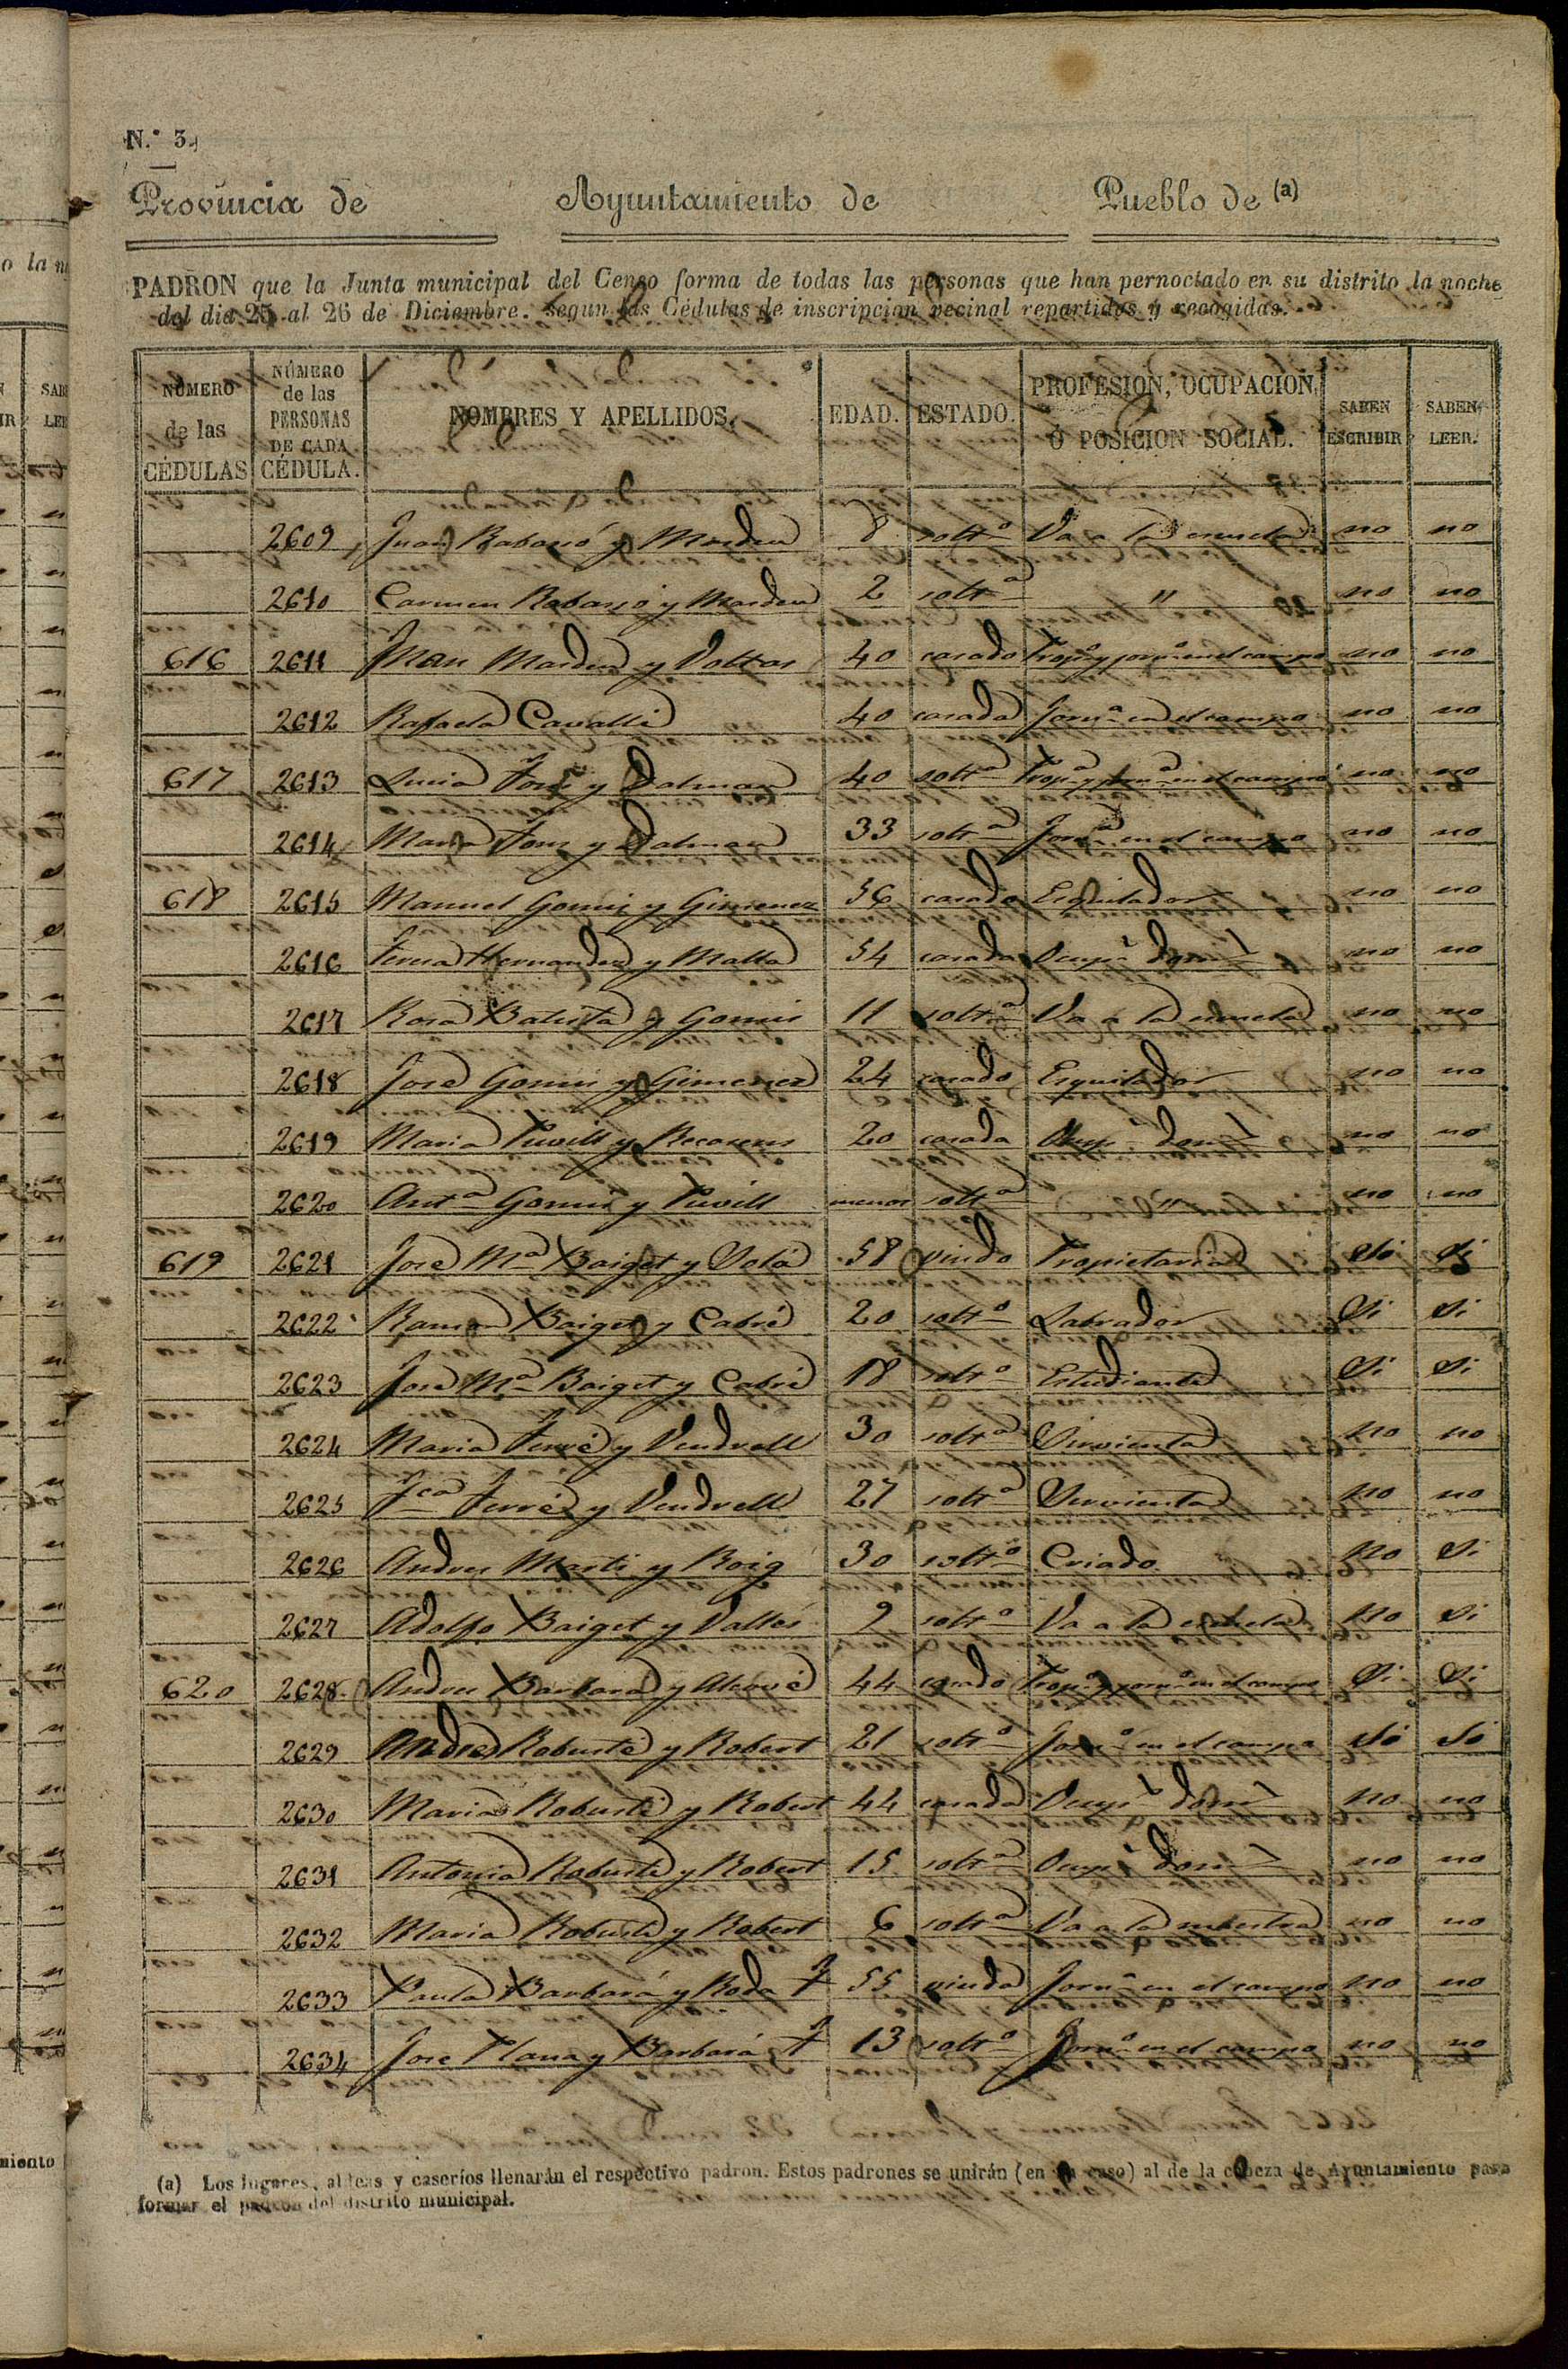 N.º 3.
Provincia de Ayuntamiento de Pueblo de (a)
PADRON que la Junta municipal del Censo forma de todas las personas que han pernoctado en su distrito la noche
del dia 25 al 26 de Diciembre. segun las Cédulas de inscripcion vecinal repartidas y recogidas.
NÚMERO de las CÉDULAS NÚMERO de las PERSONAS DE CADA CÉDULA. NOMBRES Y APELLIDOS. EDAD. ESTADO. PROFESION, OCUPACION, Ó POSICION SOCIAL. SABEN ESCRIBIR SABEN LEER.
2609 Juan y 8 soltº Va a la escuela no no
2610 Carmen y 2 soltª " no no
616 2611 Juan y Voltas 40 casado Propº y jornº en el campo no no
2612 Rafaela Cavallé 40 casada Jornª en el campo no no
617 2613 Lucia y Dalmau 40 soltª Propª y jornª en el campo no no
2614 Maria y Dalmau 33 soltª Jornª en el campo no no
618 2615 Manuel Gomis y Gimenez 56 casado Esquilador no no
2616 Teresa Hernandez y Malla 54 casada Ocupº domº no no
2617 Rosa Batista y Gomis 11 soltª Va a la escuela no no
2618 José Gomis y Gimenez 24 casado Esquilador no no
2619 Maria Puvill y Recasens 20 casada Ocupº domº no no
2620 Antª Gomis y Puvill menor soltª " no no
619 2621 José Mª Baiget y Solá 58 viudo Propietario Si Si
2622 Ramon Baiget y Cabré 20 soltº Labrador Si Si
2623 José Mª Baiget y Cabré 18 soltº Estudiante Si Si
2624 Maria Ferré y Vendrell 30 soltª Sirvienta no no
2625 Fca Ferré y Vendrell 27 soltª Sirvienta no no
2626 Andreu Marti y Roig 30 soltº Criado no Si
2627 Adolfo Baiget y Vallés 9 soltº Va a la escuela no Si
620 2628 Andreu Barbará y 44 casado Propº y jornº en el campo Si Si
2629 Andreu Robusté y Robert 21 soltº Jornº en el campo Si Si
2630 Maria Robusté y Robert 44 casada Ocupº domº no no
2631 Antonia Robusté y Robert 15 soltª Ocupº domº no no
2632 Maria Robusté y Robert 6 soltª Va a la maestra no no
2633 Paula Barbará y Roda 55 viuda Jornª en el campo no no
2634 Jose Plana y Barbará 13 soltº Jornº en el campo no no
(a) Los lugares, aldeas y caseríos llenarán el respectivo padron. Estos padrones se unirán (en su caso) al de la cabeza de Ayuntamiento para
formar el padron del distrito municipal.